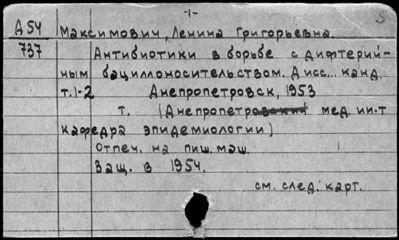 -1-
5
Д54 Максимович, Ленина Григорьевна.
737 Антибиотики в борьбе с дифтерий-
ным бациллоносительством. Дисс... канд.
т.1-2 Днепропетровск, 1953
т. (Днепропетровский мед. ин-т
кафедра эпидемиологии)
Отпеч. на пиш. маш.
Защ. в 1954.
см. след. карт.